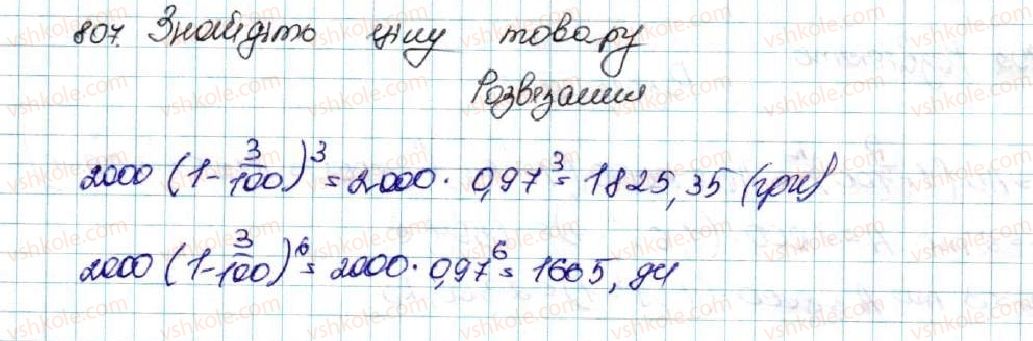 807. Знайдіть ціну товару
Розвязання
2000 (1 - 3/100)^3 = 2000 · 0,97^3 = 1825,35 (грн)
2000 (1 - 3/100)^6 = 2000 · 0,97^6 = 1665,94